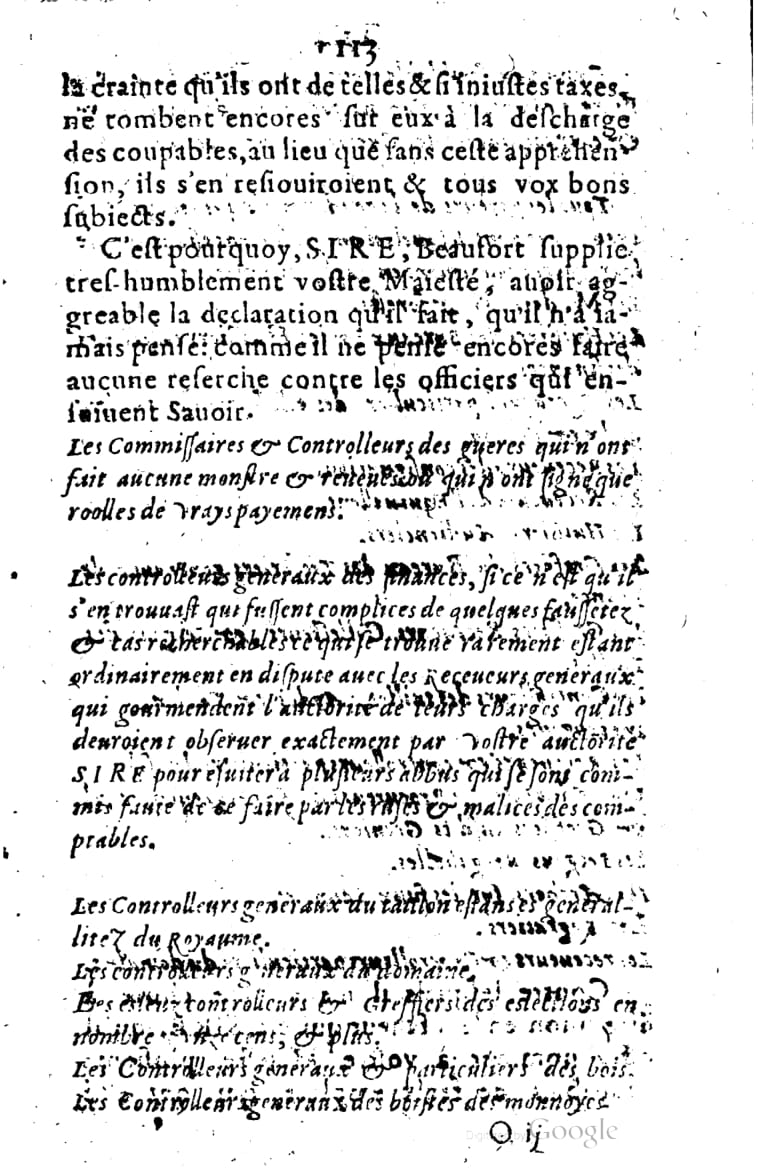 113
la crainte qu'ils ont de telles & si iniustes taxes,
ne tombent encores sur eux à la descharge
des coupables, au lieu que sans ceste apprehen-
sion, ils s'en resiouiroient & tous vox bons
subiects.
C'est pourquoy, SIRE, Beaufort supplie
tres-humblement vostre Maiesté, auoir ag-
greable la declaration qu'il fait, qu'il n'a ia-
mais pensé: comme il ne pense encores faire
aucune reserche contre les officiers qui en-
suiuent Sauoir.
Les Commissaires & Controlleurs des gueres qui n'ont
fait aucune monstre & qui n'ont signé que
roolles de vrays payemens.
Les controlleurs generaux des finances, si ce n'est qu'il
s'en trouuast qui fussent complices de quelques faussetez
& cas ce qui se trouue rarement estant
ordinairement en dispute auec les Receueurs generaux
qui gourmendent l'authorité de leurs charges qu'ils
deuroient obseruer exactement par vostre auctorité
SIRE pour esuiter à plusieurs abbus qui se sont com-
mis faute de ce faire par les ruses & malices des com-
ptables.
Les Controlleurs generaux du taillon es general-
litez du Royaume.
Les controlleurs generaux du domaine.
Des controlleurs & Greffiers des eslections en
nombre cens, & plus.
Les Controlleurs generaux & Particuliers des bois.
Les Controlleurs generaux des boistes des monnoyes
O ij
Google